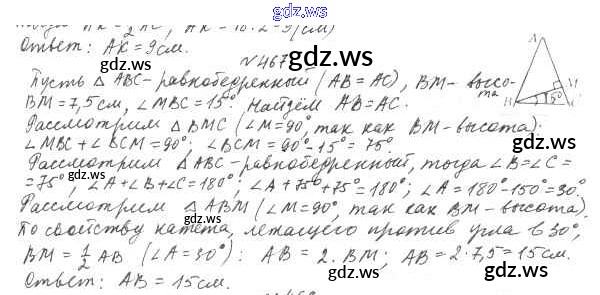 gdz.ws
AK = 1/2 AC, AK = 18:2=9(см)
Ответ: AK = 9 см.
gdz.ws
N 467
Пусть △ ABC - равнобедренный (AB = AC), BM - высо-
та
BM = 7,5 см, ∠MBC = 15°. Найдём AB = AC.
Рассмотрим △ BMC (∠M = 90°, так как BM - высота):
∠MBC + ∠BCM = 90°; ∠BCM = 90° - 15° = 75°.
Рассмотрим △ ABC - равнобедренный, тогда ∠B = ∠C =
= 75°, ∠A + ∠B + ∠C = 180°; ∠A + 75° + 75° = 180°; ∠A = 180° - 150° = 30°
gdz.ws
gdz.ws
Рассмотрим △ ABM (∠M = 90°, так как BM - высота).
По свойству катета, лежащего против угла в 30°,
BM = 1/2 AB (∠A = 30°): AB = 2 · BM; AB = 2 · 7,5 = 15 см.
Ответ: AB = 15 см.
gdz.ws
A
M
B
15°
gdz.ws